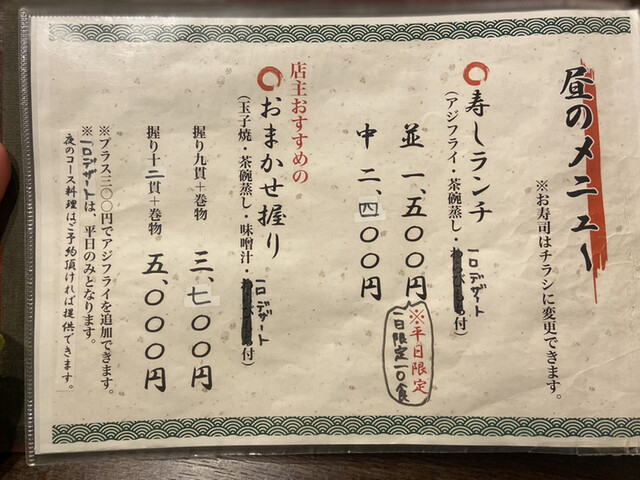 昼のメニュー
※お寿司はチラシに変更できます。
○寿しランチ
(アジフライ・茶碗蒸し・一口デザート付)
並 一、五〇〇円
※平日限定
一日限定一〇食
中 二、四〇〇円
店主おすすめの
○おまかせ握り
(玉子焼・茶碗蒸し・味噌汁・一口デザート付)
握り九貫+巻物 三、七〇〇円
握り十二貫+巻物 五、〇〇〇円
※プラス三〇〇円でアジフライを追加できます。
※一口デザートは、平日のみとなります。
夜のコース料理はご予約頂ければ提供できます。